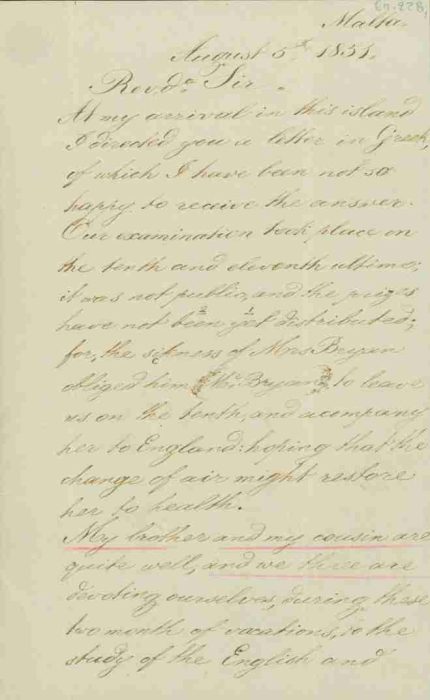 Malta.
August 5th 1831.
Revd. Sir.
At my arrival in this island
I directed you a letter in Greek,
of which I have been not so
happy to receive the answer.
Our examination took place on
the tenth and eleventh ultimo;
it was not public, and the prizes
have not been yet distributed;
for, the sickness of Mrs Bryan
obliged him (Mr Bryan) to leave
us on the tenth, and acompany
her to England: hoping that the
change of air might restore
her to health.
My brother and my cousin are
quite well, and we three are
devoting ourselves, during these
two month of vacations, to the
study of the English and